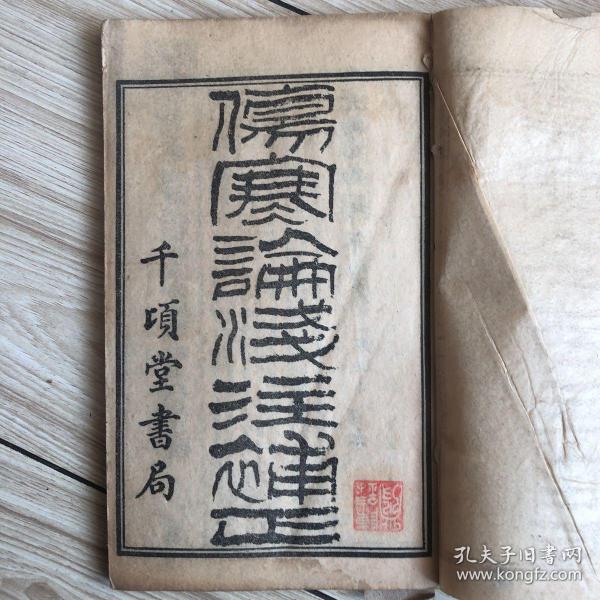 傷寒論淺注補正
千頃堂書局
孔夫子旧书网
www.kongfz.com